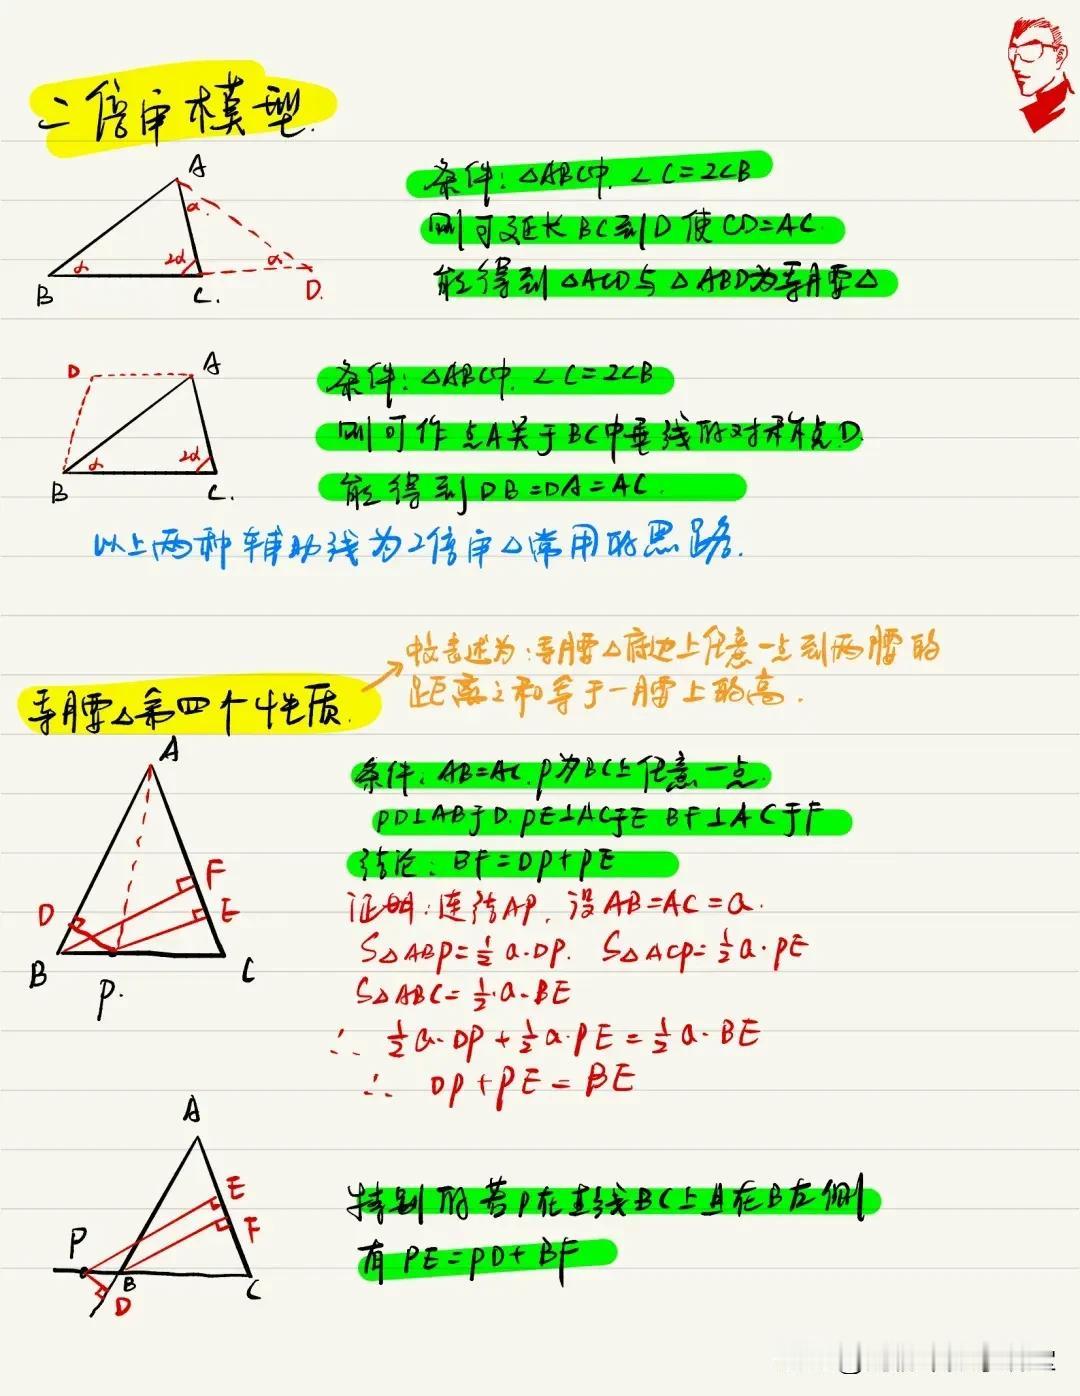 二倍角模型.
A
α
α
2α
α
B
C.
D.
条件:△ABC中.∠C=2∠B
则可延长BC到D使CD=AC.
能得到△ACD与△ABD为等腰△
D
A
α
2α
B
C.
条件:△ABC中.∠C=2∠B
则可作点A关于BC中垂线的对称点D.
能得到DB=DA=AC.
以上两种辅助线为2倍角△常用的思路.
等腰△第四个性质.
故表述为:等腰△底边上任意一点到两腰的
距离之和等于一腰上的高.
A
F
D
E
B
P.
C
条件:AB=AC.P为BC上任意一点.
PD⊥AB于D.PE⊥AC于E BF⊥AC于F
结论:BF=DP+PE
证明:连结AP.设AB=AC=a.
S△ABP=½a·DP. S△ACP=½a·PE
S△ABC=½·a·BE
∴ ½a·DP+½a·PE=½a·BE
∴ DP+PE=BE
A
E
F
P
B
D
C
特别的若P在直线BC上且在B左侧
有PE=PD+BF